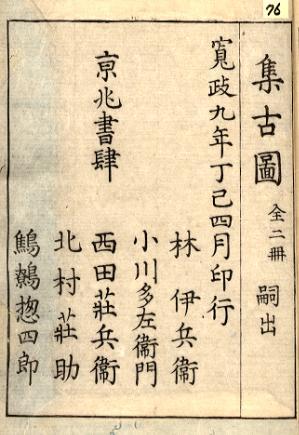 76
集古圖 全二冊 嗣出
寛政九年丁巳四月印行
京兆書肆
林伊兵衞
小川多左衞門
西田莊兵衞
北村莊助
鷦鷯惣四郎